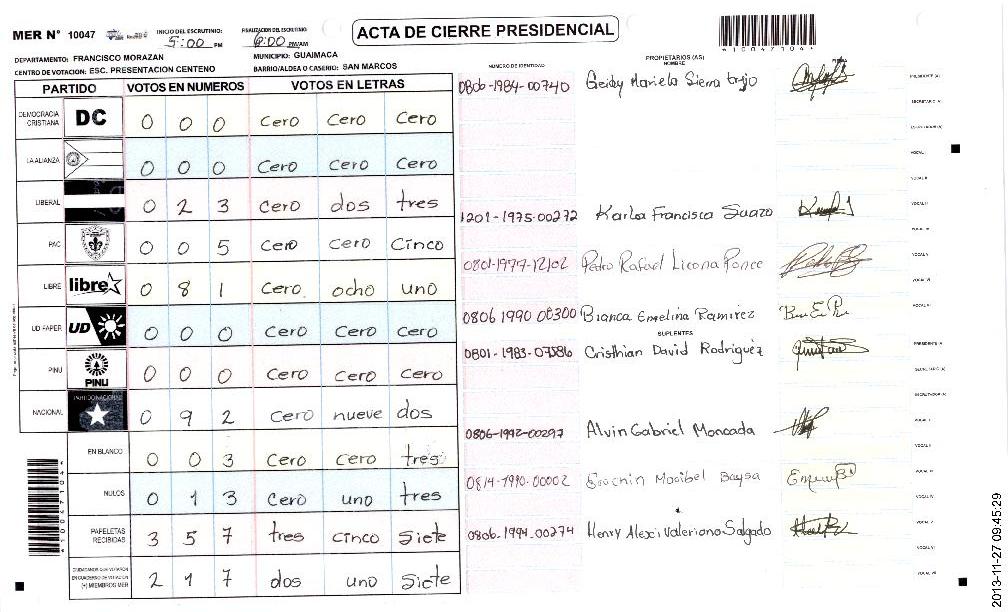 MER N° 10047 INICIO DEL ESCRUTINIO: 5:00 PM FINALIZACION DEL ESCRUTINIO: 6:00 PM/AM ACTA DE CIERRE PRESIDENCIAL
DEPARTAMENTO: FRANCISCO MORAZAN MUNICIPIO: GUAIMACA
CENTRO DE VOTACION: ESC. PRESENTACION CENTENO BARRIO/ALDEA O CASERIO: SAN MARCOS
NUMERO DE IDENTIDAD PROPIETARIOS (AS)
NOMBRE FIRMA
PARTIDO VOTOS EN NUMEROS VOTOS EN LETRAS
DEMOCRACIA CRISTIANA DC 0 0 0 cero cero cero
LA ALIANZA 0 0 0 cero cero cero
LIBERAL 0 2 3 cero dos tres
PAC 0 0 5 cero cero cinco
LIBRE libre 0 8 1 cero ocho uno
UD FAPER UD 0 0 0 cero cero cero
PINU PINU 0 0 0 cero cero cero
NACIONAL PARTIDO NACIONAL 0 9 2 cero nueve dos
EN BLANCO 0 0 3 cero cero tres
NULOS 0 1 3 cero uno tres
PAPELETAS RECIBIDAS 3 5 7 tres cinco siete
CIUDADANOS QUE VOTARON EN CUADERNO DE VOTACION (+) MIEMBROS MER 2 1 7 dos uno siete
0806-1984-00740 Mariela Sierra PRESIDENTE (A)
SECRETARIO (A)
ESCRUTADOR (A)
VOCAL I
VOCAL II
1201-1975-00272 Karla Francisca Suazo VOCAL III
VOCAL IV
0801-1979-12102 Pedro Rafael Licona Ponce VOCAL V
VOCAL VI
0806 1990 00300 Bianca Emelina Ramirez VOCAL VII
SUPLENTES
0801-1983-07586 Cristhian David Rodriguez PRESIDENTE (A)
SECRETARIO (A)
ESCRUTADOR (A)
VOCAL I
0806-1992-00297 Alvin Gabriel Moncada VOCAL II
VOCAL III
0814-1990-00002 VOCAL IV
0806-1994-00274 Henry Alexi Valeriano Salgado VOCAL V
VOCAL VI
VOCAL VII
*10047104*
*10047104*
2013-11-27 09:45:29